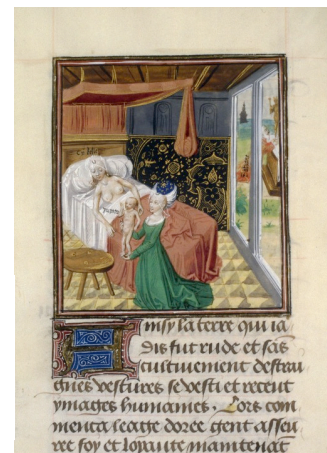 insy la terre qui ia
dis fut rude et sãs
cultivement destran
gnes vestures se vesti et receut
ymages humaines. Lors com
menca leage doree gent asseu
ree foy et loyaute maintenãt